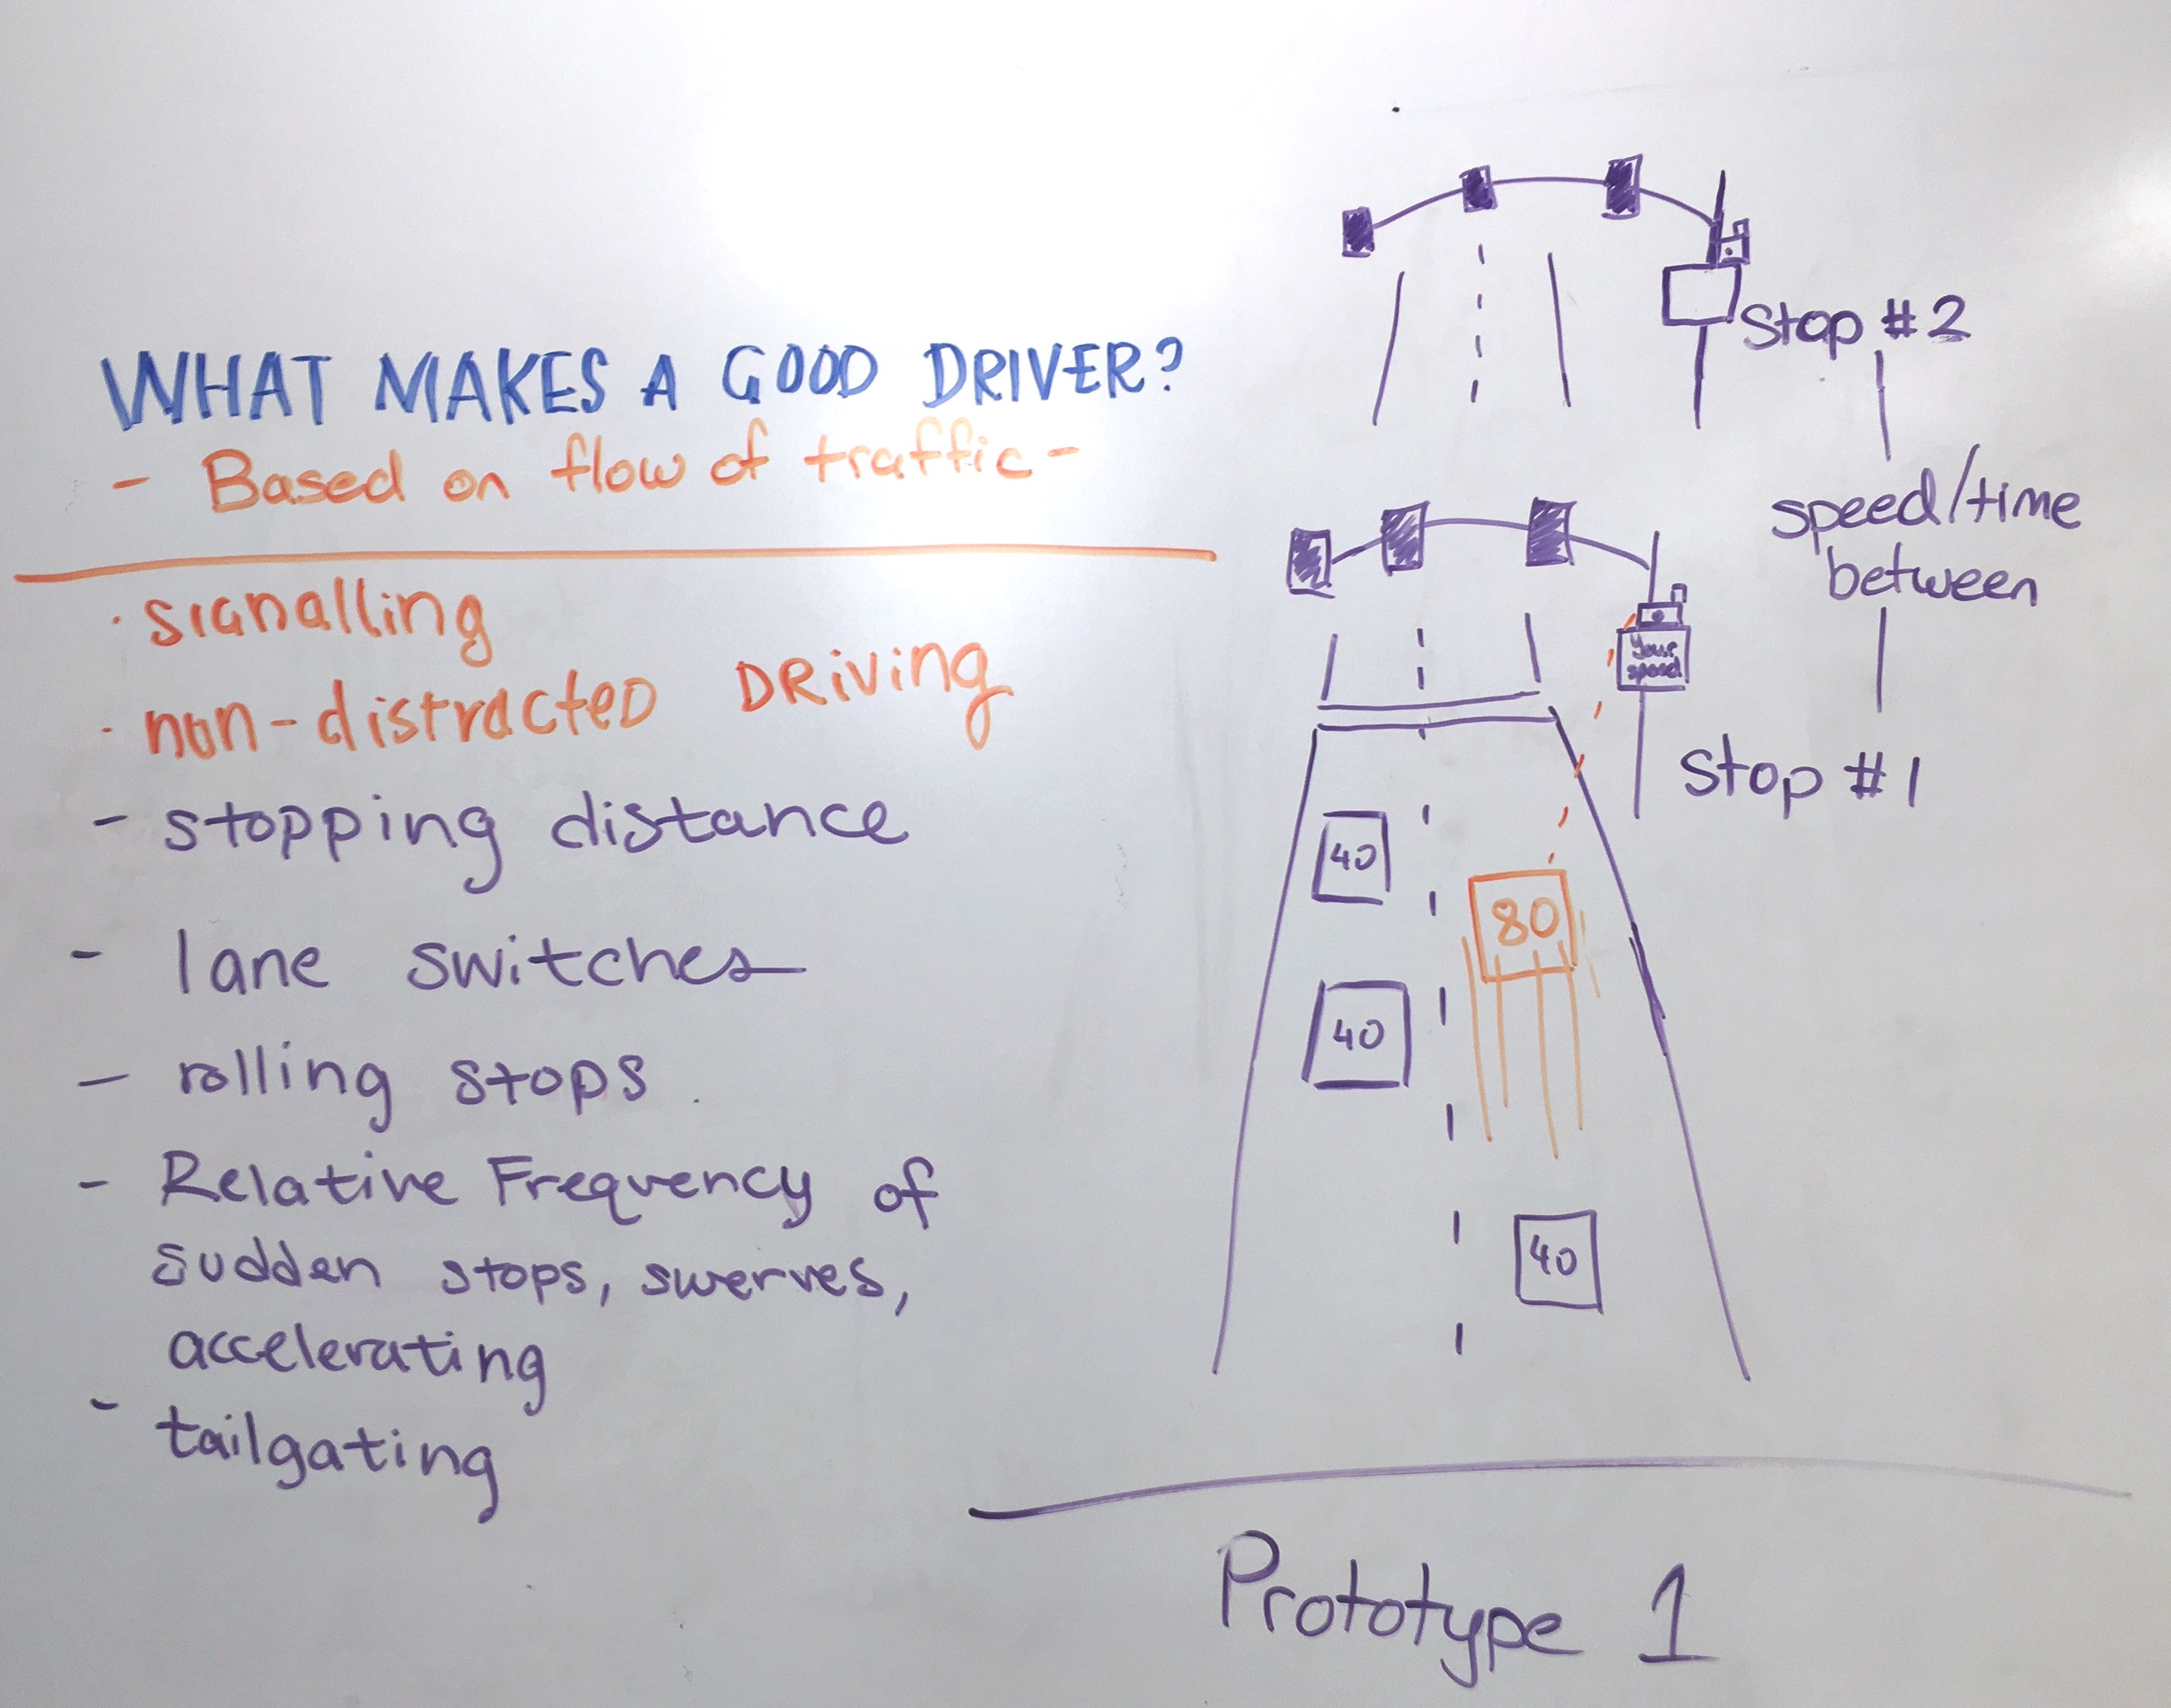 WHAT MAKES A GOOD DRIVER?
- Based on flow of traffic -
· signalling
· non-distracted DRiving
- stopping distance
- lane switches
- rolling stops
- Relative Frequency of
sudden stops, swerves,
accelerating
- tailgating
Stop #2
speed/time
between
Your
speed
Stop #1
40
80
40
40
Prototype 1